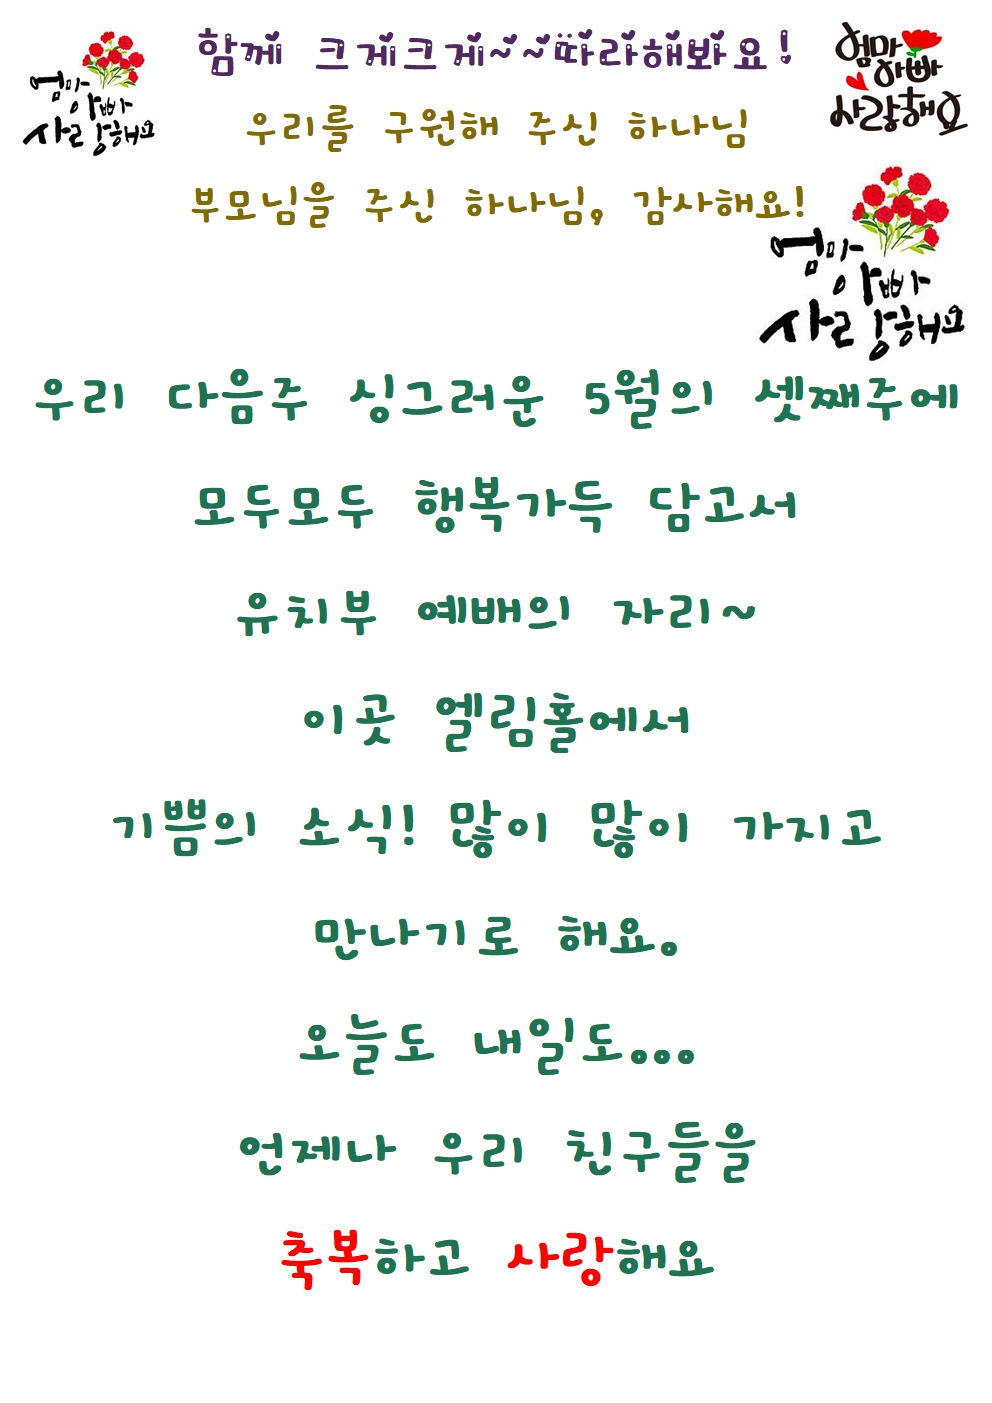 함께 크게크게~~따라해봐요!
엄마
아빠
사랑해요
엄마
아빠
사랑해요
우리를 구원해 주신 하나님
부모님을 주신 하나님, 감사해요!
엄마
아빠
사랑해요
우리 다음주 싱그러운 5월의 셋째주에
모두모두 행복가득 담고서
유치부 예배의 자리~
이곳 엘림홀에서
기쁨의 소식! 많이 많이 가지고
만나기로 해요.
오늘도 내일도...
언제나 우리 친구들을
축복하고 사랑해요